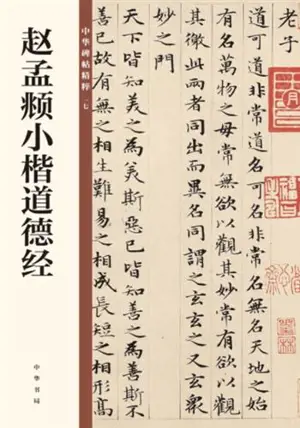 赵孟𫖯小楷道德经
中华书局
中华碑帖精粹
老子
道可道非常道名可名非常名無名天地之始
有名萬物之母常無欲以觀其妙常有欲以觀
其徼此兩者同出而異名同謂之玄玄之又玄衆
妙之門
天下皆知美之為美斯惡已皆知善之為善斯不
善已故有無之相生難易之相成長短之相形高